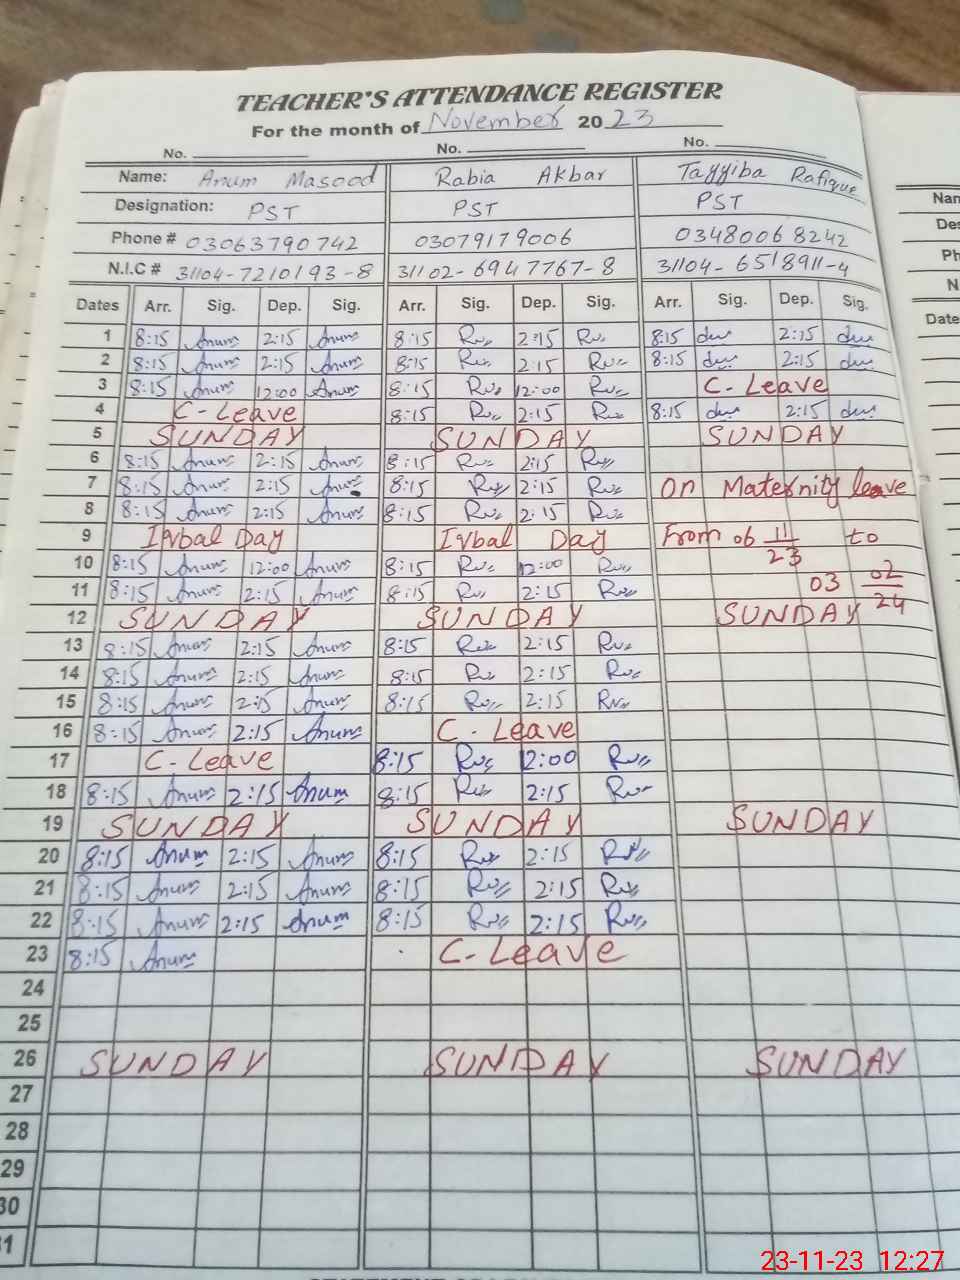 TEACHER'S ATTENDANCE REGISTER
For the month of November 2023
No. No. No.
Name: Anum Masood Rabia Akbar Tayyiba Rafique
Designation: PST PST PST
Phone # 03063790742 03079179006 03480068242
N.I.C # 31104-7210193-8 31102-6947767-8 31104-6518911-4
Dates Arr. Sig. Dep. Sig. Arr. Sig. Dep. Sig. Arr. Sig. Dep. Sig.
1 8:15 Anum 2:15 Anum 8:15 2:15 8:15 2:15
2 8:15 Anum 2:15 Anum 8:15 2:15 8:15 2:15
3 8:15 Anum 12:00 Anum 8:15 12:00 C-Leave
4 C-Leave 8:15 2:15 8:15 2:15
5 SUNDAY SUNDAY SUNDAY
6 8:15 Anum 2:15 Anum 8:15 2:15
7 8:15 Anum 2:15 Anum 8:15 2:15 On Maternity leave
8 8:15 Anum 2:15 Anum 8:15 2:15
9 Iqbal Day Iqbal Day From 06 11/23 to
10 8:15 Anum 12:00 Anum 8:15 12:00
11 8:15 Anum 2:15 Anum 8:15 2:15 03 02/24
12 SUNDAY SUNDAY SUNDAY
13 8:15 Anum 2:15 Anum 8:15 2:15
14 8:15 Anum 2:15 Anum 8:15 2:15
15 8:15 Anum 2:15 Anum 8:15 2:15
16 8:15 Anum 2:15 Anum C-Leave
17 C-Leave 8:15 12:00
18 8:15 Anum 2:15 Anum 8:15 2:15
19 SUNDAY SUNDAY SUNDAY
20 8:15 Anum 2:15 Anum 8:15 2:15
21 8:15 Anum 2:15 Anum 8:15 2:15
22 8:15 Anum 2:15 Anum 8:15 2:15
23 8:15 Anum C-Leave
24
25
26 SUNDAY SUNDAY SUNDAY
27
28
29
30
23-11-23 12:27